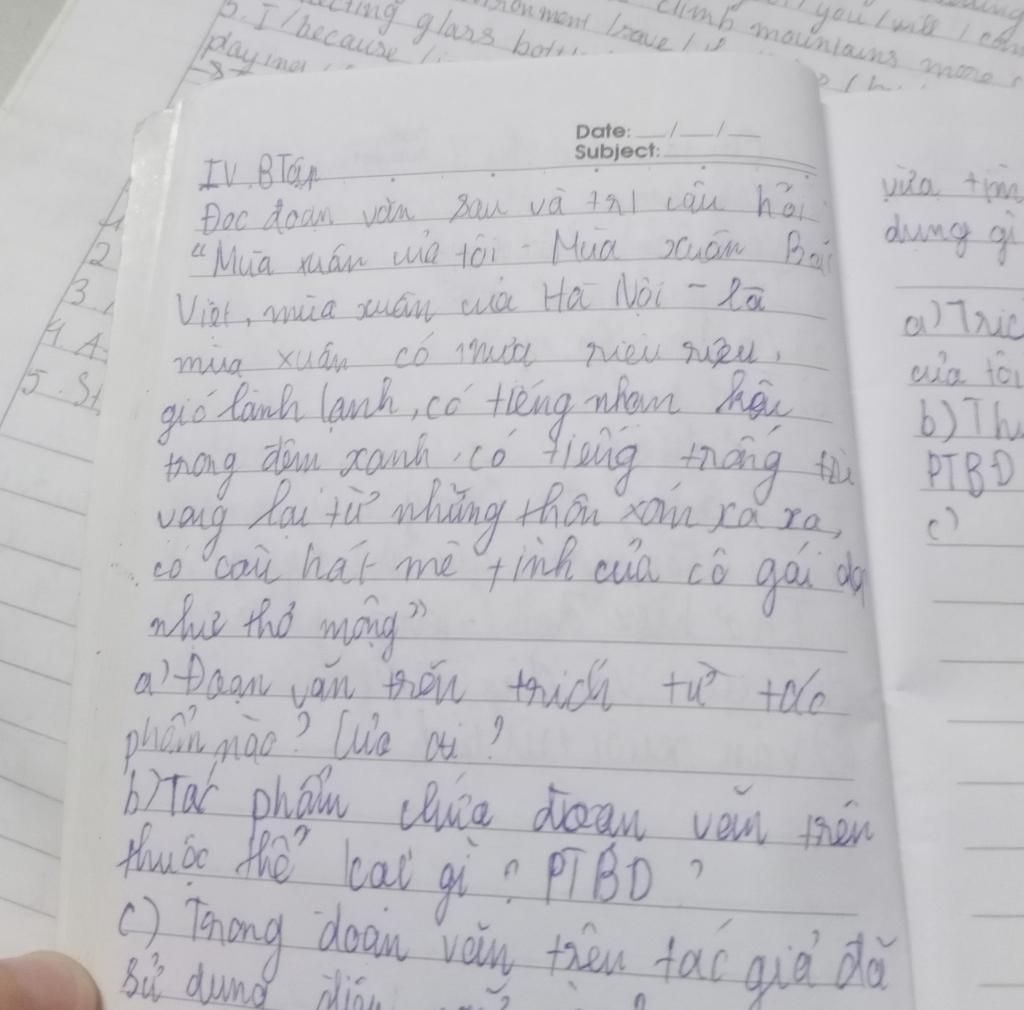 glass
5. I / because
climb mountains more
you / will / can
Date: __/__/__
Subject:
IV. BTập
Đọc đoạn văn sau và trl câu hỏi
"Mùa xuân của tôi - Mùa xuân Bắc
Việt, mùa xuân của Hà Nội - là
mùa xuân có mưa riêu riêu,
gió lành lạnh, có tiếng nhạn kêu
trong đêm xanh, có tiếng trống
vọng lại từ những thôn xóm xa xa,
có câu hát mê tình của cô gái đẹp
như thơ mộng"
a) Đoạn văn trên trích từ tác
phẩm nào? Của ai?
b) Tác phẩm chứa đoạn văn trên
thuộc thể loại gì? PTBĐ?
c) Trong đoạn văn trên tác giả đã
sử dụng
2
3
4. A
5. St
vừa tìm
dung gì
a) Tríc
của tôi
b) Th
PTBĐ
c)